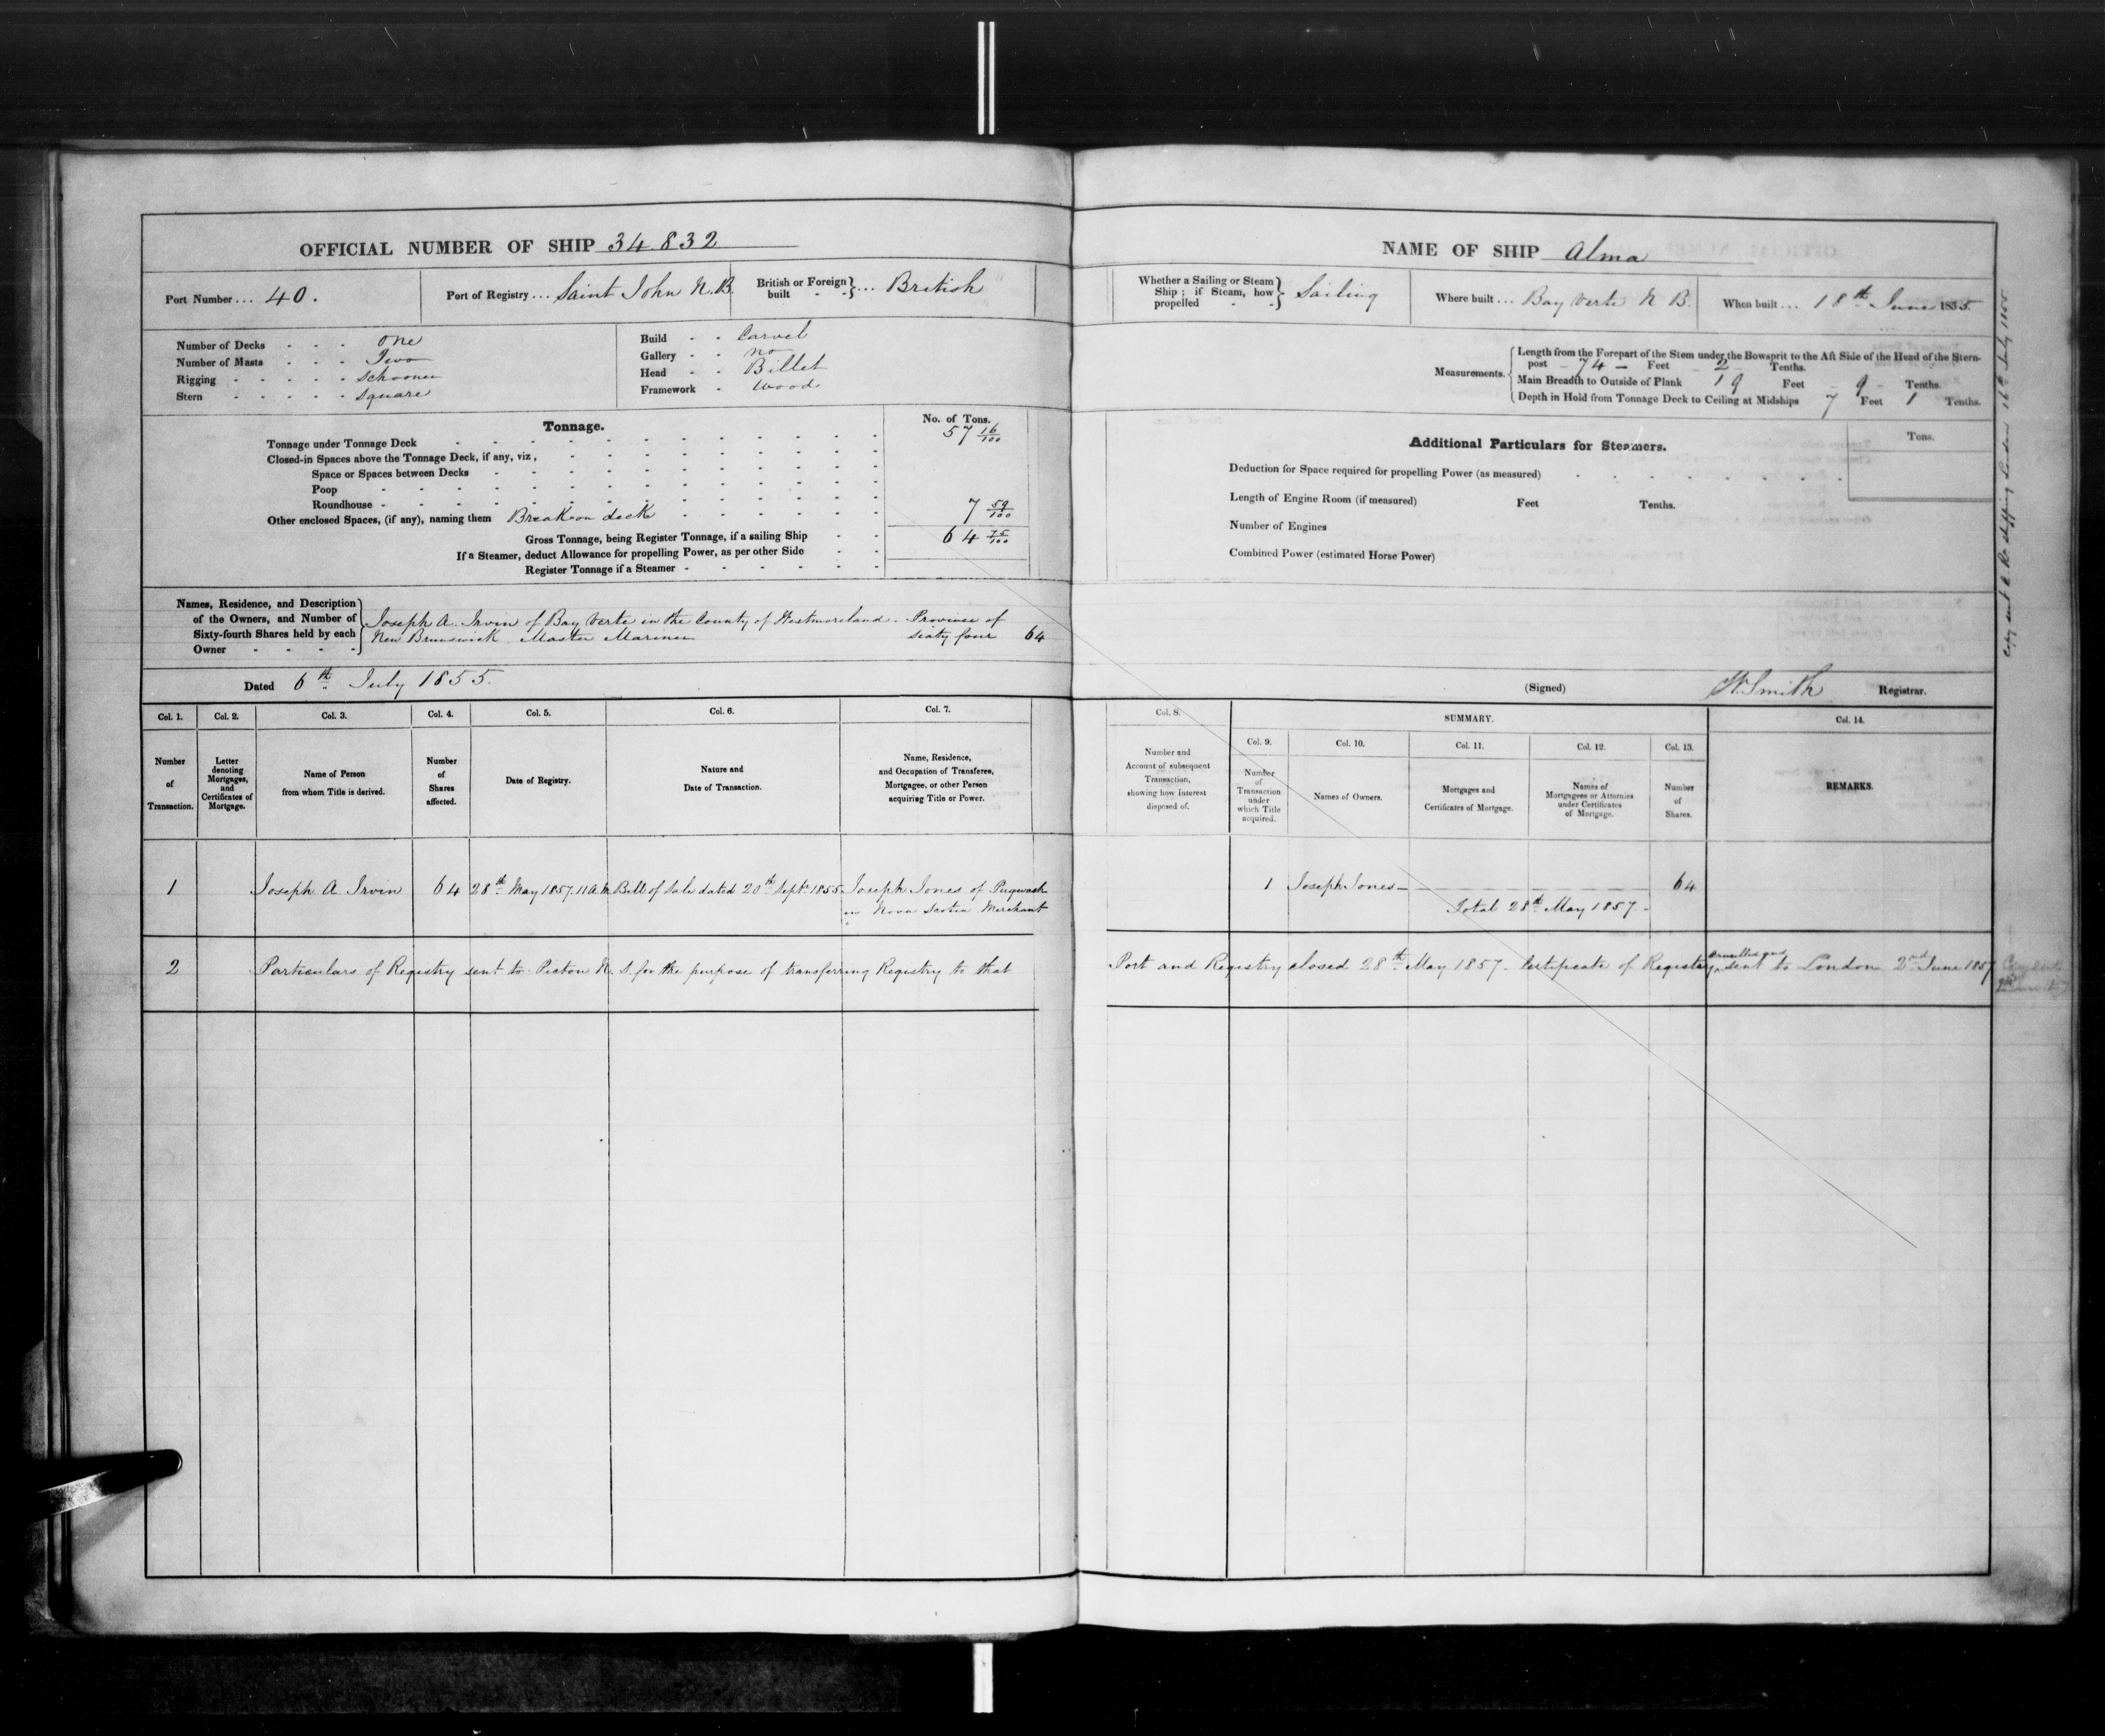 OFFICIAL NUMBER OF SHIP 34.832
Port Number ... 40.
Port of Registry ... Saint John N.B.
British or Foreign built } ... British
Number of Decks - - - one
Number of Masts - - - Two
Rigging - - - - - Schooner
Stern - - - - - Square
Build - - Carvel
Gallery - - no
Head - - Billet
Framework - Wood
Tonnage.
No. of Tons.
Tonnage under Tonnage Deck 57 16/100
Closed-in Spaces above the Tonnage Deck, if any, viz,
Space or Spaces between Decks
Poop
Roundhouse
Other enclosed Spaces, (if any), naming them Break on deck 7 59/100
Gross Tonnage, being Register Tonnage, if a sailing Ship 64 75/100
If a Steamer, deduct Allowance for propelling Power, as per other Side
Register Tonnage if a Steamer
Names, Residence, and Description
of the Owners, and Number of
Sixty-fourth Shares held by each
Owner
Joseph A. Irvin of Bay Verte in the County of Westmoreland. Province of
New Brunswick Master Mariner sixty four 64
Dated 6th July 1855.
Col. 1. Col. 2. Col. 3. Col. 4. Col. 5. Col. 6. Col. 7.
Number of Transaction.
Letter denoting Mortgages, and Certificates of Mortgage.
Name of Person from whom Title is derived.
Number of Shares affected.
Date of Registry.
Nature and Date of Transaction.
Name, Residence, and Occupation of Transferee, Mortgagee, or other Person acquiring Title or Power.
1 Joseph A. Irvin 64 28th May 1857. 11 A.M. Bill of Sale dated 20th Septr 1855. Joseph Jones of Pugwash
in Nova Scotia Merchant
2 Particulars of Registry sent to Pictou N. S. for the purpose of transferring Registry to that
NAME OF SHIP Alma
Whether a Sailing or Steam Ship; if Steam, how propelled } Sailing
Where built ... Bay Verte N B.
When built ... 18th June 1855.
Measurements.
Length from the Forepart of the Stem under the Bowsprit to the Aft Side of the Head of the Stern-
post - 74 - Feet - 2 - Tenths.
Main Breadth to Outside of Plank 19 Feet - 9 - Tenths.
Depth in Hold from Tonnage Deck to Ceiling at Midships 7 Feet 1 Tenths.
Additional Particulars for Steamers.
Tons.
Deduction for Space required for propelling Power (as measured)
Length of Engine Room (if measured) Feet Tenths.
Number of Engines
Combined Power (estimated Horse Power)
(Signed) W. Smith Registrar.
Col. 8. SUMMARY. Col. 14.
Col. 9. Col. 10. Col. 11. Col. 12. Col. 13.
Number and Account of subsequent Transaction, showing how Interest disposed of.
Number of Transaction under which Title acquired.
Names of Owners.
Mortgages and Certificates of Mortgage.
Names of Mortgagees or Attornies under Certificates of Mortgage.
Number of Shares.
REMARKS.
1 Joseph Jones - 64
Total 28th May 1857 -
Port and Registry closed 28th May 1857. Certificate of Registry cancelled and sent to London 2nd June 1857
Copy sent shipping London 16th July 1855